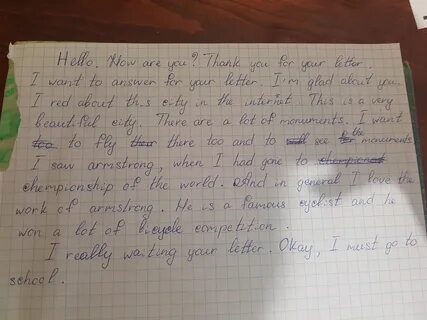 Hello, How are you? Thank you for your letter.
I want to answer for your letter. I'm glad about you.
I red about this city in the internet. This is a very
beautiful city. There are a lot of monuments. I want
too to fly their there too and to see the monuments
I saw armstrong, when I had gone to
chempionship of the world. And in general I love the
work of armstrong. He is a famous cyclist and he
won a lot of bicycle competition.
I really waiting your letter. Okay, I must go to
school.